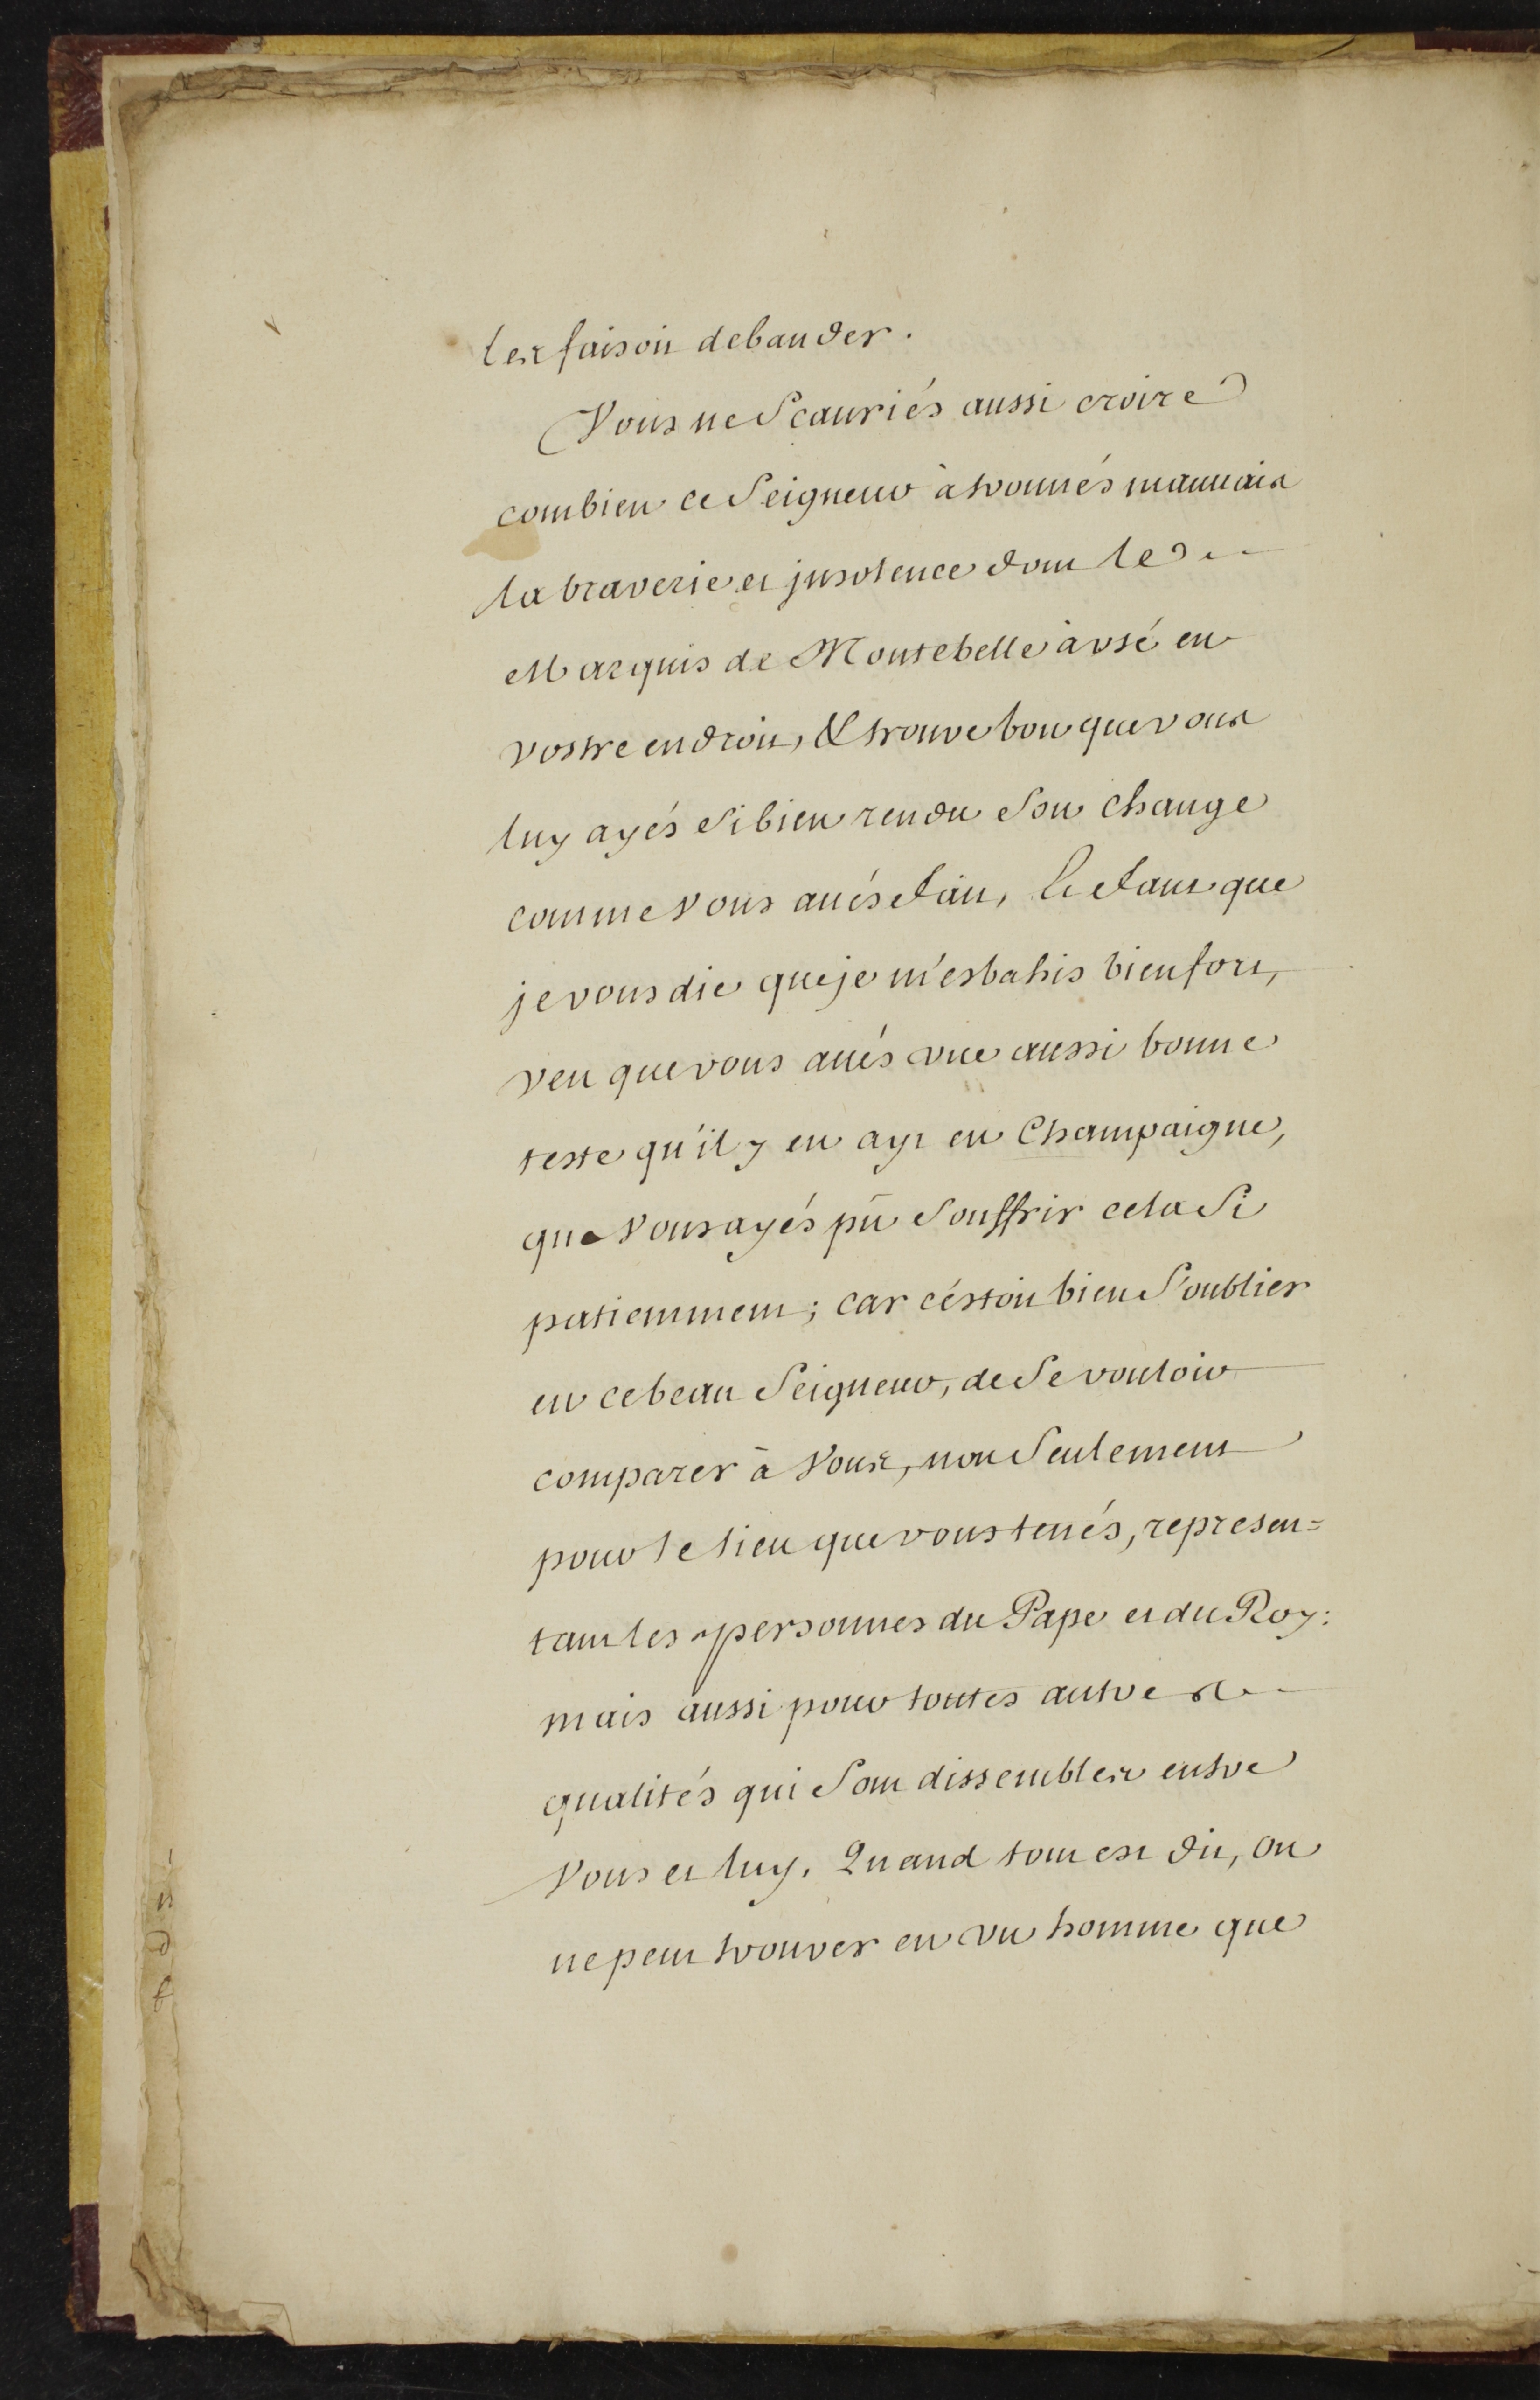 les faisoit debander.
Vous ne Scauriés aussi croire
combien ce Seigneur à trouués mauuais
la braverie et jnsolence dont le
Marquis de Montebelle à vsé en
vostre endroit, & trouve bon que vous
luy ayés si bien rendu son change
comme vous aués fait, Et faut que
je vous die que je m'esbahis bien fort,
veu que vous aués vne aussi bonne
teste qu'il y en ayt en Champaigne,
que vous ayés pû Souffrir cela Si
patiemment; car c'éstoit bien S'oublier
en ce beau Seigneur, de Se vouloir
comparer à vous, non Seulement
pour le lieu que vous tenés, represen=
tant les personnes du Pape et du Roy:
mais aussi pour toutes autres
qualités qui sont dissembles entre
vous et luy. Quand tout est dit, on
ne peut trouver en vn homme que